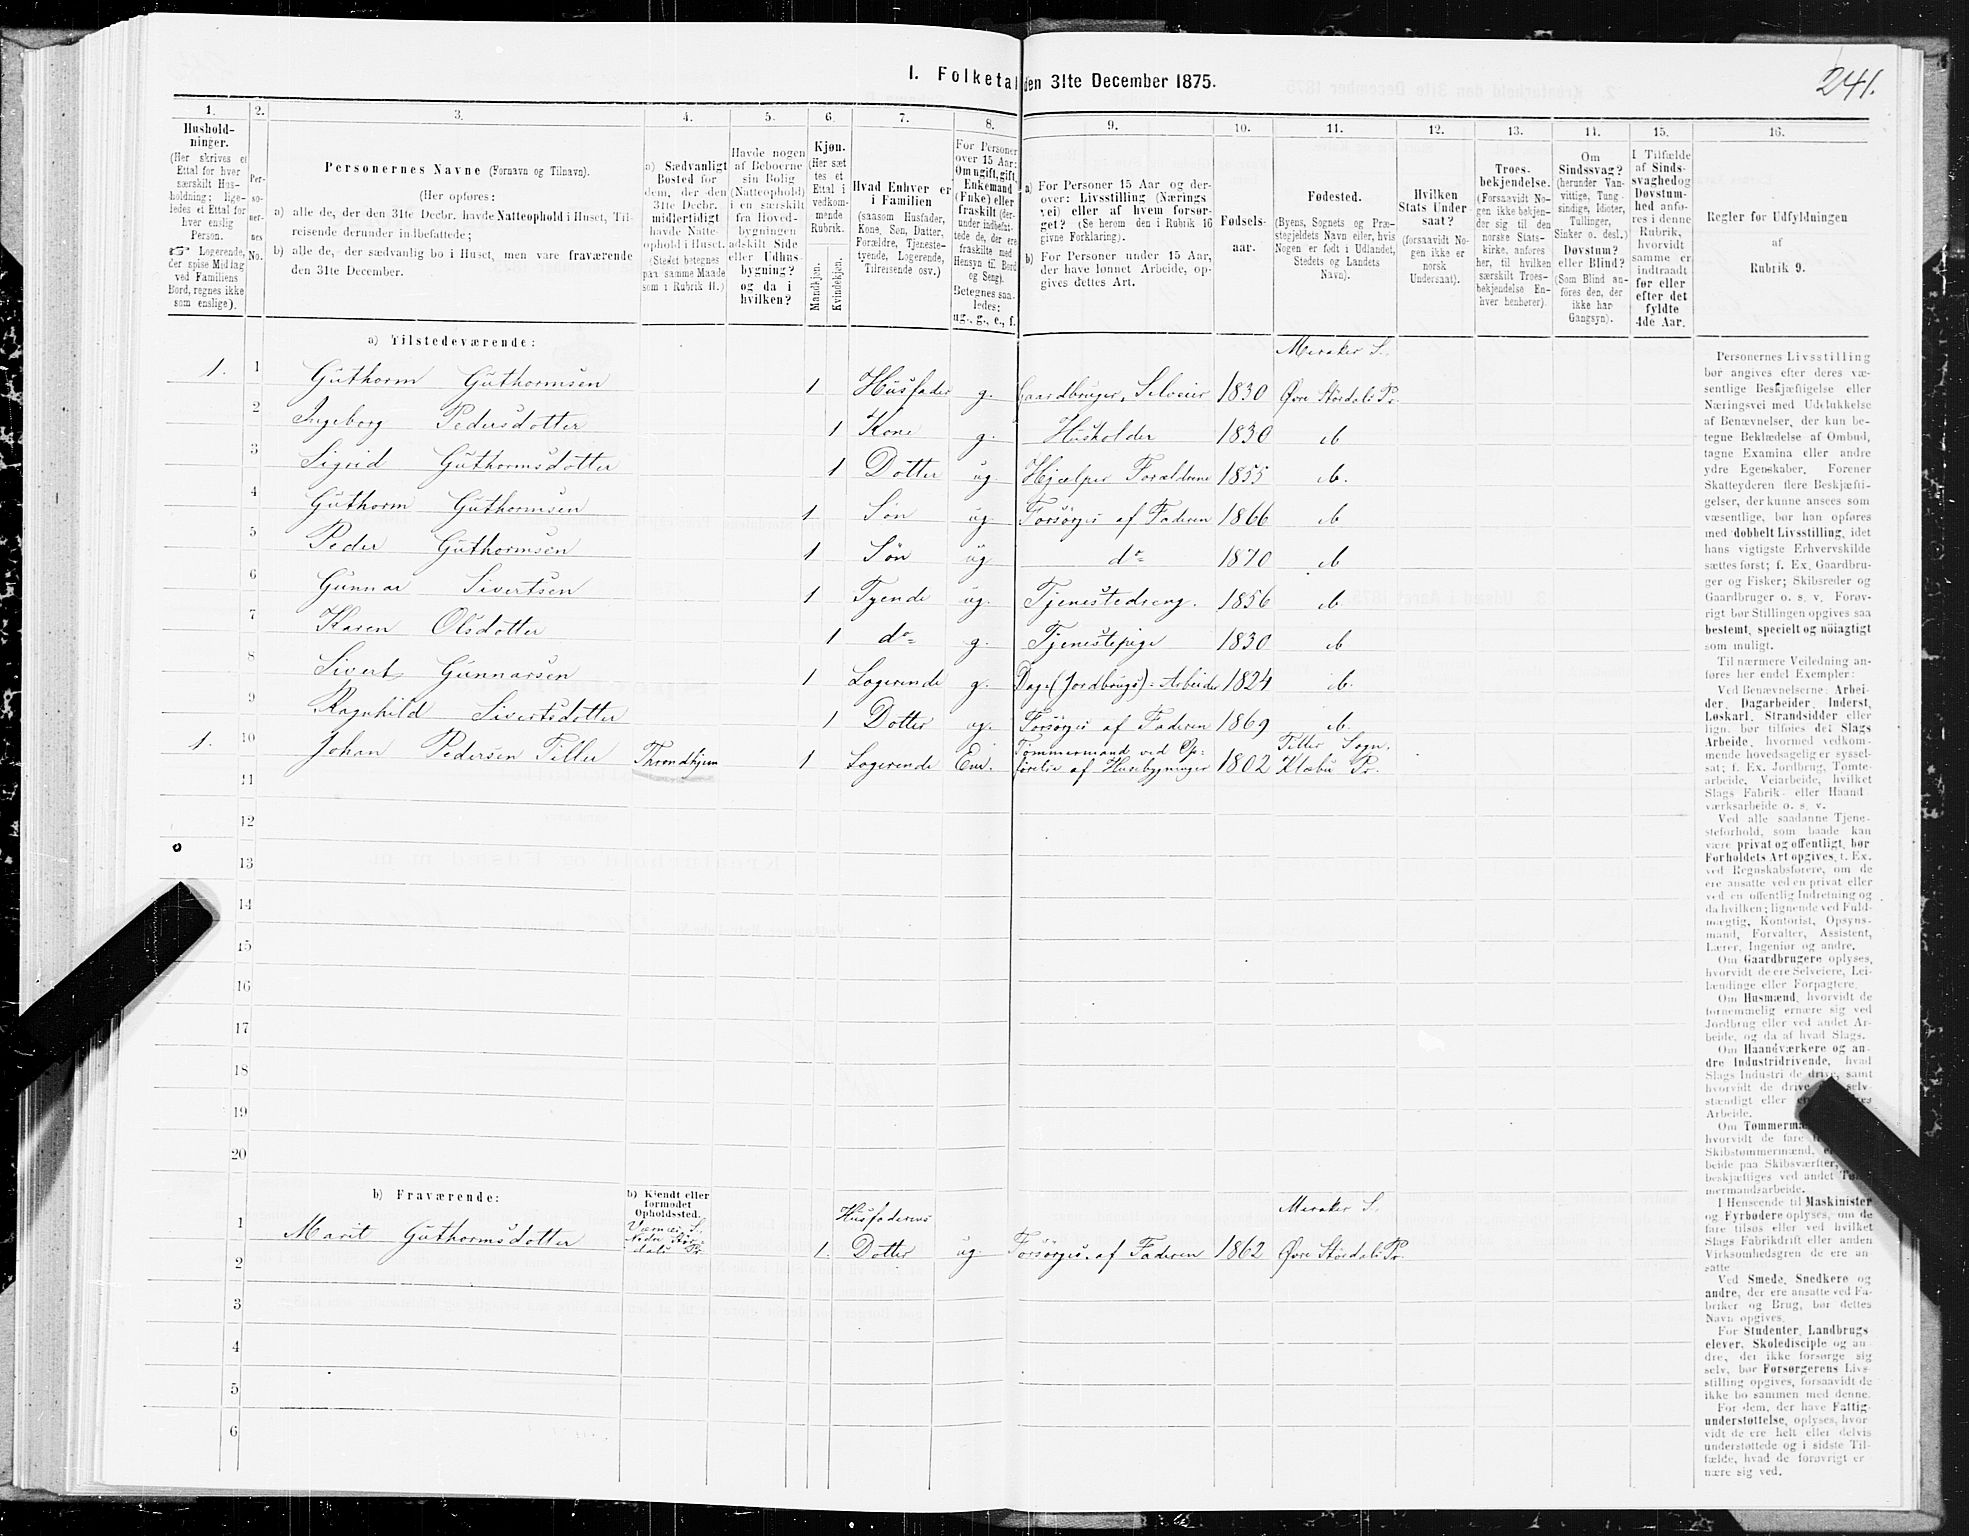 241.
I. Folketal den 31te December 1875.
1. 2. 3. 4. 5. 6. 7. 8. 9. 10. 11. 12. 13. 14. 15. 16.
Hushold-
ninger.
(Her skrives et
Ettal for hver
særskilt Hus-
holdning; lige-
ledes et Ettal for
hver enslig
Person.
☞ Logerende,
der spise Middag
ved Familiens
Bord, regnes ikke
som enslige).
Per-
so-
ner-
nes
No.
Personernes Navne (Fornavn og Tilnavn).
(Her opføres:
a) alle de, der den 31te Decbr. havde Natteophold i Huset, Til-
reisende derunder indbefattede;
b) alle de, der sædvanlig bo i Huset, men vare fraværende
den 31te December.
a) Sædvanligt
Bosted for
dem, der den
31te Decbr.
midlertidigt
havde Natte-
ophold i Huset.
(Stedet betegnes
paa samme Maade
som i Rubrik 11.)
Havde nogen
af Beboerne
sin Bolig
(Natteophold)
i en særskilt
fra Hoved-
bygningen
adskilt Side
eller Udhus-
bygning?
og da i
hvilken?
Kjøn.
(Her sæt
tes et
Ettal i
vedkom-
mende
Rubrik.
Mandkjøn.
Kvindekjøn.
Hvad Enhver er
i Familien
(saasom Husfader,
Kone, Søn, Datter,
Forældre, Tjeneste-
tyende, Logerende,
Tilreisende osv.)
For Personer
over 15 Aar:
Om ugift, gift,
Enkemand
(Enke) eller
fraskilt (der-
under indbefat-
tede de, der ere
fraskilte med
Hensyn til Bord
og Seng).
Betegnes saa-
ledes:
ug., g., e., f.
a) For Personer 15 Aar og der-
over: Livsstilling (Nærings
vei) eller af hvem forsør-
get? (Se herom den i Rubrik 16
givne Forklaring).
b) For Personer under 15 Aar,
der have lønnet Arbeide, op-
gives dettes Art.
Fødsels-
aar.
Fødested.
(Byens, Sognets og Præ-
stegjeldets Navn eller, hvis
Nogen er født i Udlandet,
Stedets og Landets
Navn).
Hvilken
Stats Under
saat?
(forsaavidt No-
gen ikke er
norsk
Undersaat).
Troes-
bekjendelse.
(Forsaavidt No-
gen ikke bekjen-
der sig til den
norske Stats-
kirke, anføres
her, til hvilken
særskilt Troes-
bekjendelse En-
hver henhører).
Om
Sindssvag?
(herunder Van-
vittige, Tung-
sindige, Idioter,
Tullinger,
Sinker o. desl.)
Døvstum?
eller Blind?
(Som Blind an-
føres den, der
ikke har
Gangsyn).
I Tilfælde
af Sinds-
svaghed og
Døvstum-
hed anfø-
res i denne
Rubrik,
hvorvidt
samme er
indtraadt
før eller
efter det
fyldte
4de Aar.
Regler før Udfyldningen
af
Rubrik 9.
a) Tilstedeværende:
Meraker S.
1. 1 Guthorm Guthormsen 1 Husfader g. Gaardbruger, Selveier 1830 Øvre Stördals Pr.
2 Ingeborg Pedersdotter 1 Kone g. Husholder 1830 do
3 Sigrid Guthormsdotter 1 Dotter ug. Hjælper Forældrene 1855 do.
4 Guthorm Guthormsen 1 Søn ug Forsørges af Faderen 1866 do
5 Peder Guthormsen 1 Søn ug do 1870 do
6 Gunnar Sivertsen 1 Tyende ug. Tjenestedreng. 1856 do
7 Karen Olsdotter 1 do g. Tjenestepige 1830 do
8 Sivert Gunnarsen 1 Logerende g. Dag-(Jordbrugs)-Arbeider 1824 do.
9 Ragnhild Sivertsdotter 1 Dotter ug. Forsørges af Faderen 1869 do
1. 10 Johan Pedersen Tiller Throndhjem 1 Logerende Enk. Tømmermand ved Op- 1802 Tiller Sogn.
førelse af Husebygninger Klæbu Pr.
11
12
13
14
15
16
17
18
19
20
b) Fraværende:
b) Kjendt eller
formodet
Opholdssted.
1 Marit Guthormsdotter Værnes S. Nedre Stør-dals Pr. 1. Husfaderens Dotter ug. Forsørges af Faderen 1862 Meraker S. Øvre Stördals Pr.
2
3
4
5
6
Personernes Livsstilling
bør angives efter deres væ-
sentlige Beskjæftigelse eller
Næringsvei med Udelukkelse
af Benævnelser, der kun be-
tegne Beklædelse af Ombud,
tagne Examina eller andre
ydre Egenskaber. Forener
Skatteyderen flere Beskjæfti-
gelser, der kunne ansees som
væsentlige, bør han opføres
med dobbelt Livsstilling, idet
hans vigtigste Erhvervskilde
sættes først; f. Ex. Gaardbru-
ger og Fisker; Skibsreder og
Gaardbruger o. s. v. Forøv-
rigt bør Stillingen opgives saa
bestemt, specielt og nöiagtigt
som muligt.
Til nærmere Veiledning an-
føres her endel Exempler:
Ved Benævnelserne: Arbei-
der, Dagarbeider, Inderst,
Løskarl, Strandsidder eller
lign. bør tilføies det Slags
Arbeide, hvormed vedkom-
mende hovedsagelig er syssel-
sat; f. Ex. Jordbrug, Tomte-
arbeide, Veiarbeide, hvilket
Slags Fabrik- eller Haand-
værksarbeide o. s. v.
Ved alle saadanne Tjene-
steforhold, som baade kan
være privat og offentligt, bør
Forholdets Art opgives, t. Ex.
ved Regnskabsførere, om de
ere ansatte ved en privat eller
ved en offentlig Indretning og
da hvilken; lignende ved Fuld-
mægtig, Kontorist, Opsyns-
mand, Forvalter, Assistent,
Lærer, Ingeniør og andre.
Om Gaardbrugere oplyses,
hvorvidt de ere Selveiere, Lei-
lændinge eller Forpagtere.
Om Husmænd, hvorvidt de
fornemmelig ernære sig ved
Jordbrug eller ved andet Ar-
beide, og da af hvad Slags.
Om Haandværkere og an-
dre Industridrivende, hvad
Slags Industri de drive, samt
hvorvidt de drive selv-
stændigt eller
Arbeide.
Om
hvorvidt de fare
Skibstømmermænd,
beide paa Skibsværfter,
beskjæftiges ved andet Tøm-
mermandsarbeide.
I Henseende til Maskinister
og Fyrbødere oplyses, om de
fare tilsøs eller ved hvilket
Slags Fabrikdrift eller anden
Virksomhedsgren de ere an-
satte
Ved Smede, Snedkere og
andre, der ere ansatte ved Fa-
briker og Brug, bør dettes
Navn opgives.
For Studenter, Landbrugs
elever, Skoledisciple og an-
dre, der ikke forsørge sig
selv, bør Forsørgerens Livs-
stilling opgives, forsaavidt de
ikke bo sammen med denne.
For dem, der have Fattig-
understøttelse, oplyses, hvor
vidt de ere helt eller delvis
understøttede og i sidste Til-
fælde, hvad de forøvrigt er
nære sig ved.